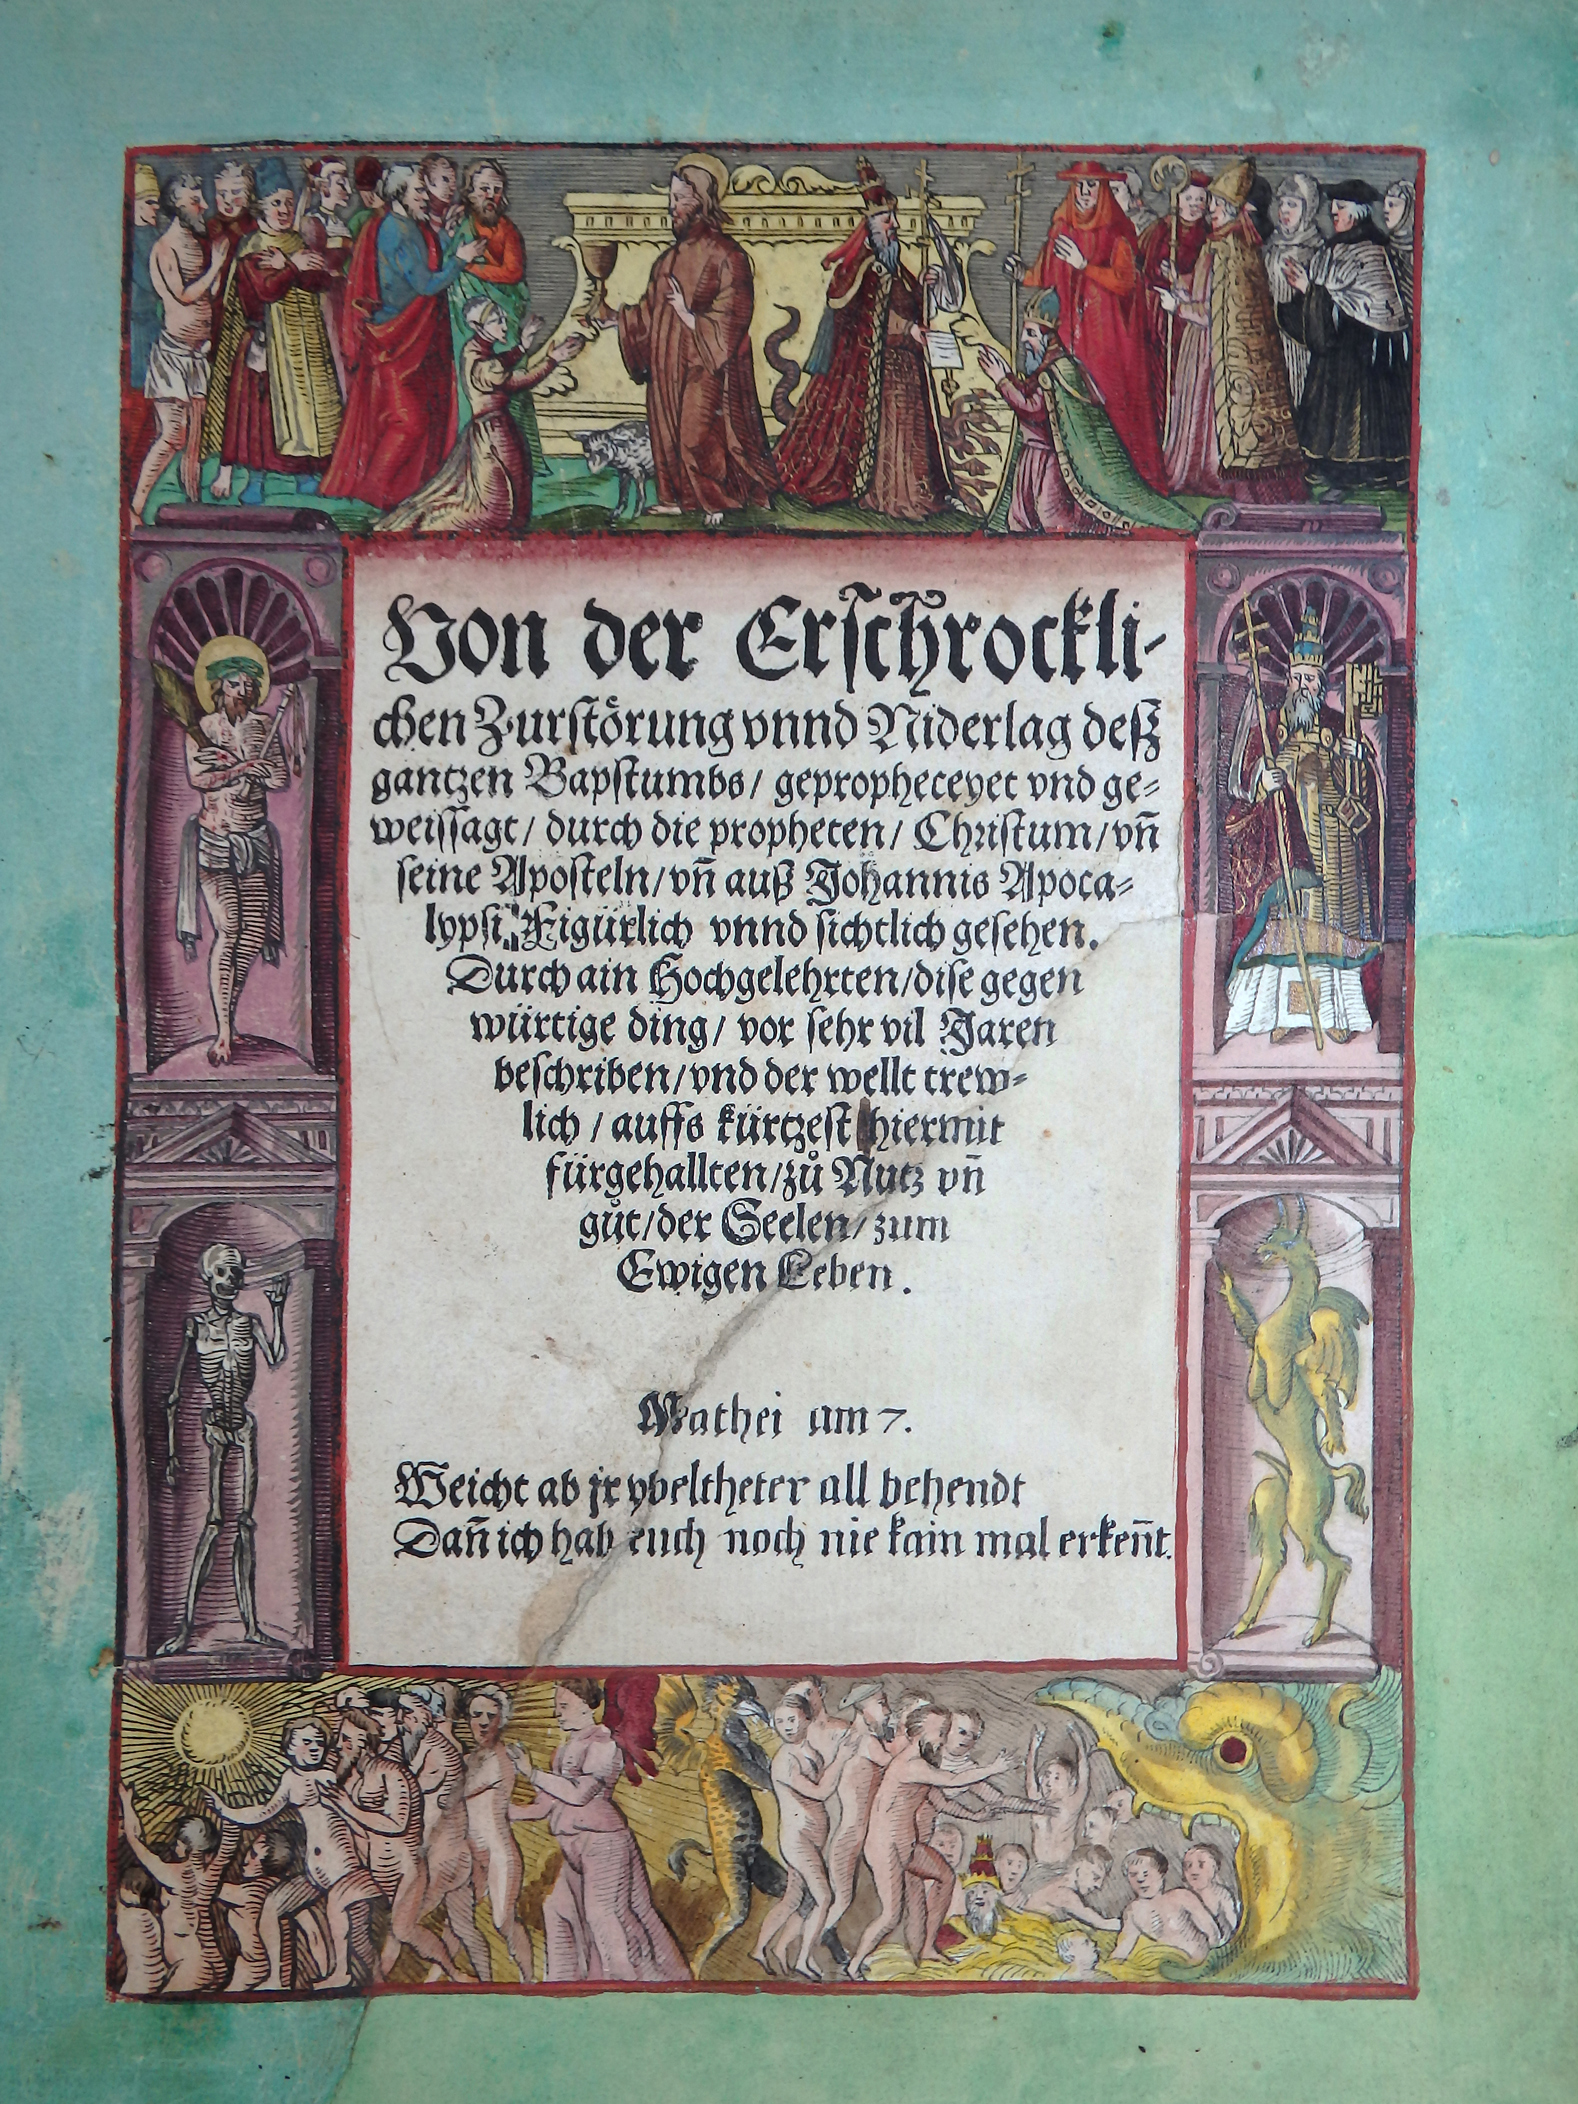 Von der Erschrockli-
chen Zurstörung vnnd Niderlag deß
gantzen Bapstumbs/ gepropheceyet vnd ge-
weissagt/ durch die propheten/ Christum/vn̄
seine Aposteln/vn̄ auß Johannis Apoca-
lypsi Figürlich vnnd sichtlich gesehen.
Durch ain Hochgelehrten/dise gegen
würtige ding/ vor sehr vil Jaren
beschriben/vnd der wellt trew-
lich / auffs kürtzest hiermit
fürgehallten/zů Nutz vn̄
gůt/der Seelen/ zum
Ewigen Leben.
Mathei am 7.
Weicht ab jr ybeltheter all behendt
Dan̄ ich hab euch noch nie kain mal erken̄t.